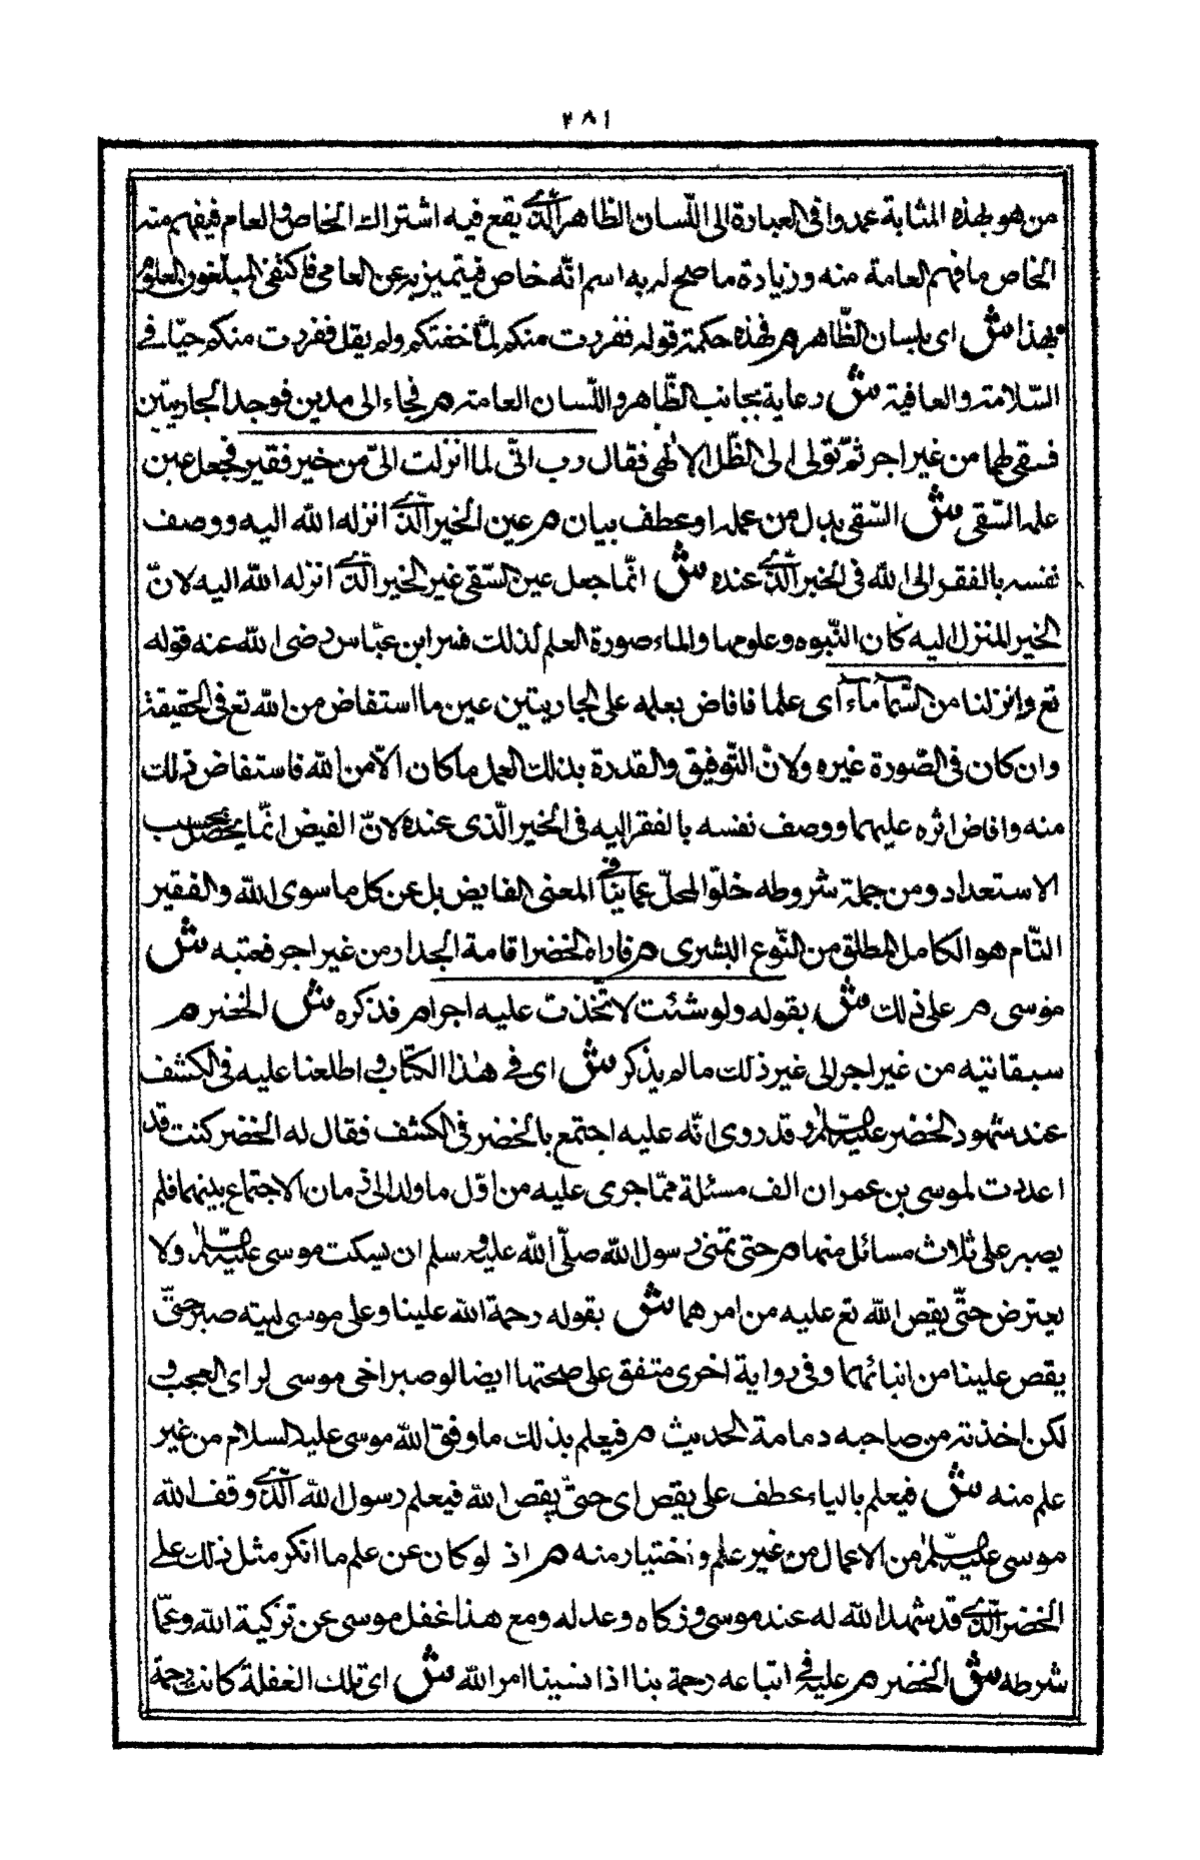 ٢٨١
من هو بهذه المثابة عمدوا فى العبارة الى اللّسان الظاهر الّذى يقع فيه اشتراك الخاص و العام فيفهم منه
الخاص ما فهم العامة منه وزيادة ما صح له به اسم انّه خاص فيتميز به عن العامى فاكتفى المبلغون العلوم
بهذا ش اى بلسان الظّاهر م فهذه حكمة قوله ففررت منكم لمّا خفتكم ولم يقل ففررت منكم حبّا فى
السّلامة والعافية ش رعاية بجانب الظّاهر و اللّسان العامة م فجاء الى مدين فوجد الجاريتين
فسقى لهما من غير اجر ثمّ تولى الى الظّل الالٰهى فقال رب انّى لما انزلت الىّ من خير فقير فجعل عين
عمله السّقى ش السّقى بدل من عمله او عطف بيان م عين الخير الّذى انزله الله اليه ووصف
نفسه بالفقر الى الله فى الخير الّذى عنده ش انّما جعل عين السّقى غير الخير الّذى انزله الله اليه لانّ
الخير المنزل اليه كان النّبوه وعلومها والماء صورة العلم لذلك فسر ابن عبّاس رضى الله عنه قوله
تع وانزلنا من السّمآ مآء اى علما فافاض بعلمه على الجاريتين عين ما استفاض من الله تع فى الحقيقة
وان كان فى الصّورة غيره ولانّ التّوفيق والقدرة بذلك العمل ما كان الّا من الله فاستفاض ذلك
منه وافاض اثره عليهما ووصف نفسه بالفقر اليه فى الخير الّذى عنده لانّ الفيض انّما يحصل بحسب
الاستعداد ومن جملة شروطه خلوّ المحلّ عمّا ينافى المعنى الفايض بل عن كل ما سوى الله والفقير
التّام هو الكامل المطلق من النّوع البشرى م فاراه الخضر اقامة الجدار من غير اجر فعتبه ش
موسى م على ذلك ش بقوله ولو شئت لاتّخذت عليه اجرا م فذكره ش الخضر م
سبقانيه من غير اجر الى غير ذلك ما لم يذكر ش اى فى هٰذا الكتاب و اطلعنا عليه فى الكشف
عند شهود الخضر عليه السّلام و قد روى انّه عليه اجتمع بالخضر فى الكشف فقال له الخضر كنت قد
اعددت لموسى بن عمران الف مسئلة ممّا جرى عليه من اوّل ما ولد الى زمان الاجتماع بينهما فلم
يصبر على ثلاث مسائل منها م حتى تمنى رسول الله صلّى الله عليه و سلم ان يسكت موسى عليه السّلام ولا
يعترض حتّى يقص الله تع عليه من امرهما ش بقوله رحمة الله علينا وعلى موسى ليته صبر حتّى
يقص علينا من انبائهما وفى رواية اخرى متفق على صحتها ايضا لو صبر اخى موسى لراى العجب و
لكن اخذته من صاحبه دمامة الحديث م فيعلم بذلك ما وفق الله موسى عليه السلام من غير
علم منه ش فيعلم بالياء عطف على يقص اى حتّى يقص الله فيعلم رسول الله الّذى وقف الله
موسى عليه السّلام من الاعمال من غير علم و اختيار منه م اذ لو كان عن علم ما انكر مثل ذلك على
الخضر الّذى قد شهد الله له عند موسى و زكاه وعدله ومع هذا غفل موسى عن تزكية الله وعمّا
شرطه ش الخضر م عليه فى اتباعه رحمة بنا اذا نسينا امر الله ش اى تلك الغفلة كانت رحمة